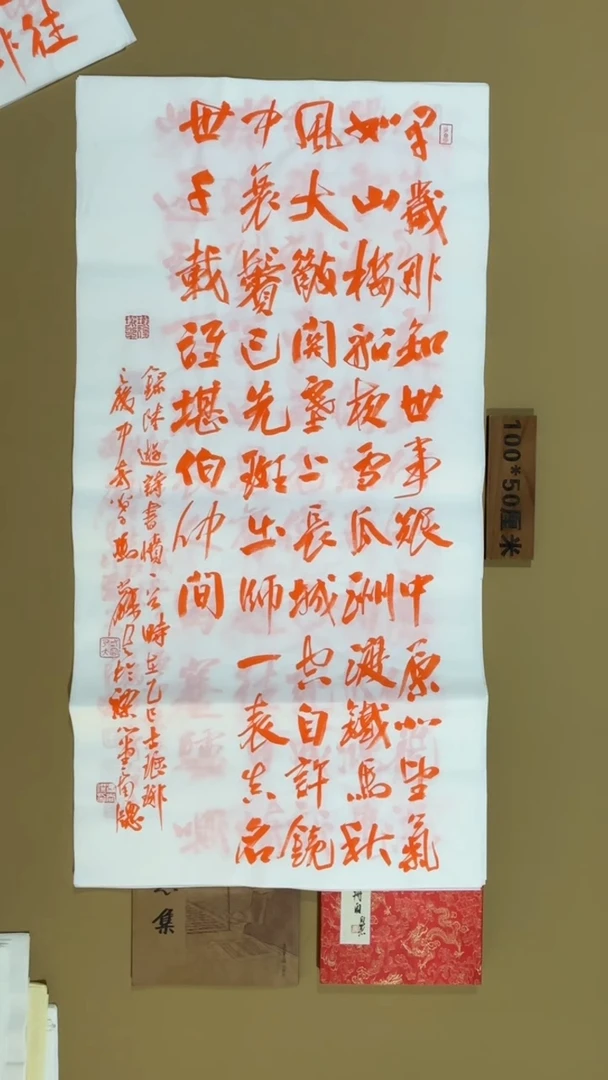 早歲那知世事艱中原北望氣
如山樓船夜雪瓜洲渡鐵馬秋
風大散関塞上長城空自許鏡
中衰鬢已先班出師一表真名
世千載誰堪伯仲間
錄陸遊詩書憤 時在乙巳
100*50厘米
集
往